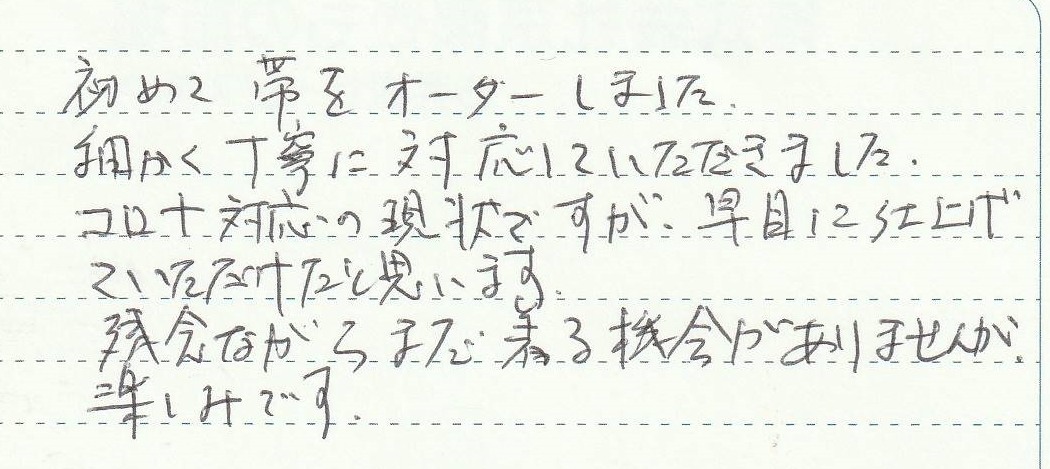 初めて帯をオーダーしました.
細かく丁寧に対応していただきました.
コロナ対応の現状ですが、早目に仕上げ
ていただけたと思います.
残念ながらまだ着る機会がありませんが、
楽しみです.